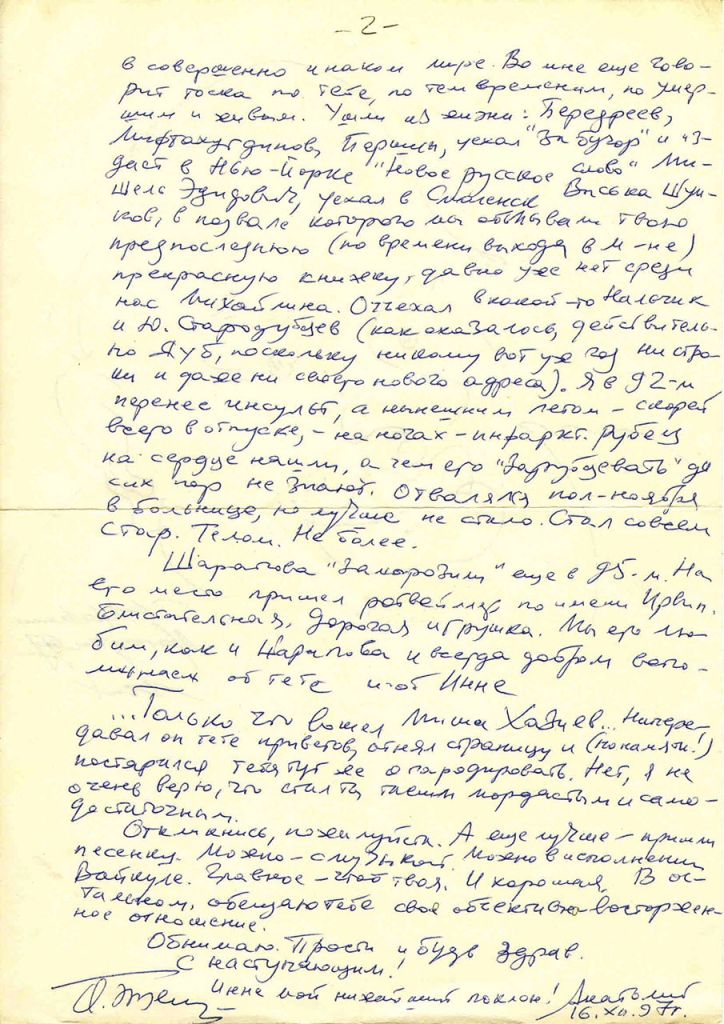 - 2 -
в совершенно инаком мире. Во мне еще гово-
рит тоска по тебе, по тем временам, по умер-
шим и живым. Ушли из жизни: Передреев,
Мифтахутдинов, Першин, уехал "За бугор" и из-
дает в Нью-Йорке "Новое русское слово" Ми-
шель Эдидович, уехал в Смоленск Васька Шум-
ков, в подвале которого мы обмывали твою
предпоследнюю (по времени выхода в М-не)
прекрасную книжку, давно уже нет среди
нас Михайлина. Отъехал в какой-то Нальчик
и Ю. Стародубцев (как оказалось, действитель-
но Дуб, поскольку никому вот уже год ни стро-
ки и даже ни своего нового адреса). Я в 92-м
перенес инсульт, а нынешним летом - скорей
всего в отпуске, - на ногах - инфаркт. Рубец
на сердце нашли, а чем его "Зарубцевать" до
сих пор не знают. Отвалялся пол-ноября
в больнице, но лучше не стало. Стал совсем
стар. Телом. Не более.
Шарапова "Заморозили" еще в 95-м. На
его место пришел ротвейлер по имени Ирвин.
Блистательная, дорогая игрушка. Мы его лю-
бим, как и Шарапова и всегда добром вспо-
минаем об тебе и об Инне
...Только что вошел Миша Хазиев... Напере-
давал он тебе приветов, отнял страницу и (по памяти!)
постарался тебя тут же опародировать. Нет, я не
очень верю, что стал ты таким мордастым и само-
достаточным.
Откликнись, пожалуйста. А еще лучше - пришли
песенку. Можно - с музыкой. Можно в исполнении
Вайкуле. Главное - чтоб твоя. И хорошая. В ос-
тальном, обещаю тебе свое объективно-восторжен-
ное отношение.
Обнимаю. Прости и будь здрав.
С наступающим!
Инне мой нижайший поклон! Анатолий
16. XII. 97г.